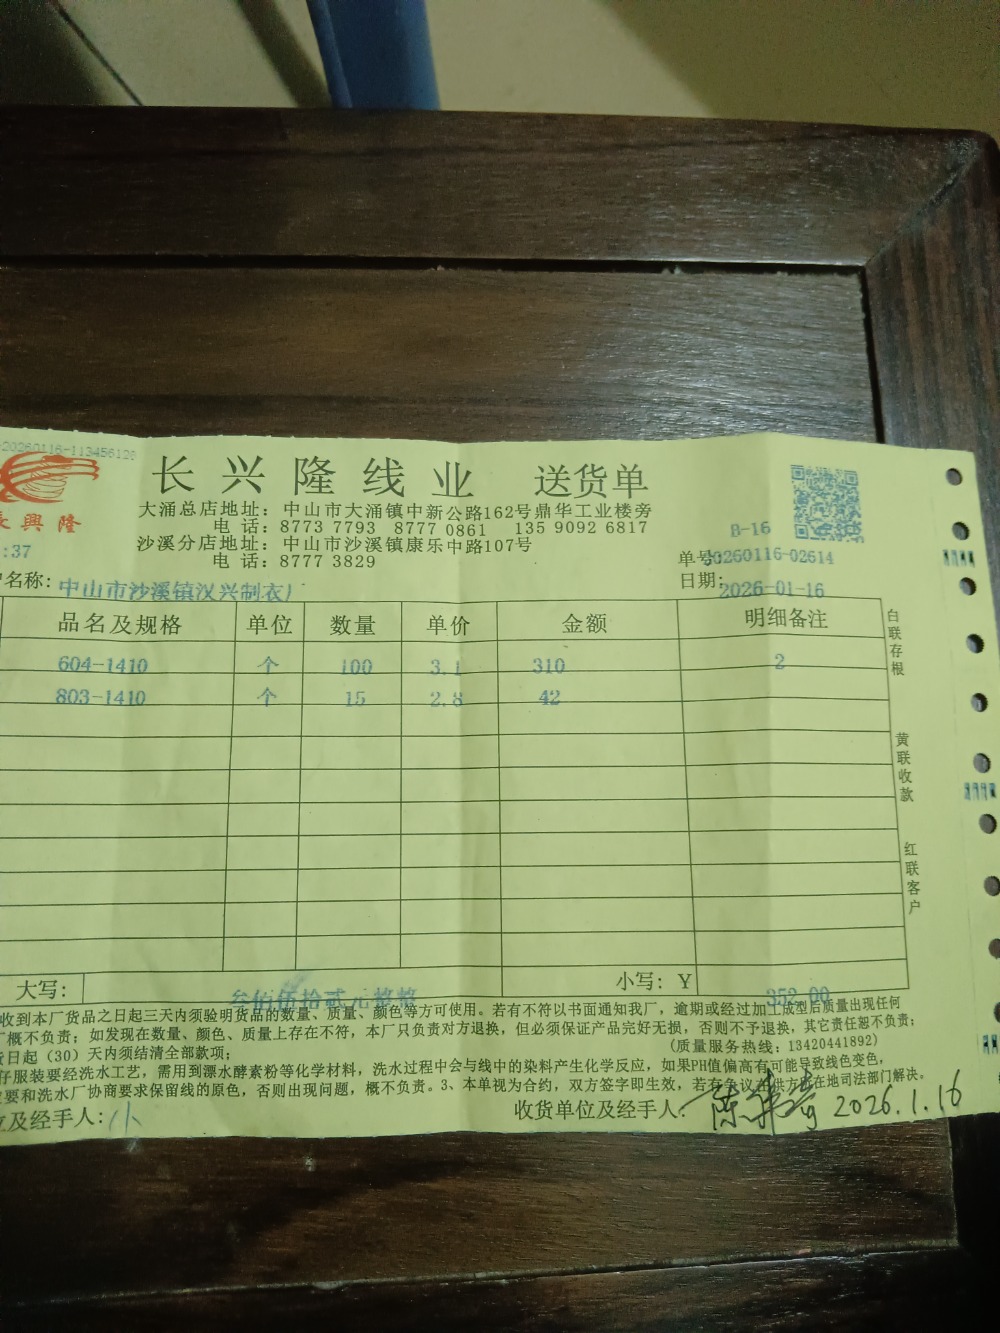 20260116-113456128
長興隆
长兴隆线业 送货单
大涌总店地址：中山市大涌镇中新公路162号鼎华工业楼旁
电 话：8773 7793 8777 0861 135 9092 6817
沙溪分店地址：中山市沙溪镇康乐中路107号
电 话：8777 3829
B-16
:37
单号 20260116-02614
名称：中山市沙溪镇汉兴制衣厂
日期：2026-01-16
品名及规格 单位 数量 单价 金额 明细备注
604-1410 个 100 3.1 310 2
803-1410 个 15 2.8 42
白联存根
黄联收款
红联客户
大写：叁佰伍拾贰元整整 小写：Y 352.00
收到本厂货品之日起三天内须验明货品的数量、质量、颜色等方可使用。若有不符以书面通知我厂，逾期或经过加工成型后质量出现任何
厂概不负责；如发现在数量、颜色、质量上存在不符，本厂只负责对方退换，但必须保证产品完好无损，否则不予退换，其它责任恕不负责；
日起（30）天内须结清全部款项； （质量服务热线：13420441892）
仔服装要经洗水工艺，需用到漂水酵素粉等化学材料，洗水过程中会与线中的染料产生化学反应，如果PH值偏高有可能导致线色变色，
要和洗水厂协商要求保留线的原色，否则出现问题，概不负责。3、本单视为合约，双方签字即生效，若有争议在供方所在地司法部门解决。
位及经手人： 收货单位及经手人： 2026.1.16